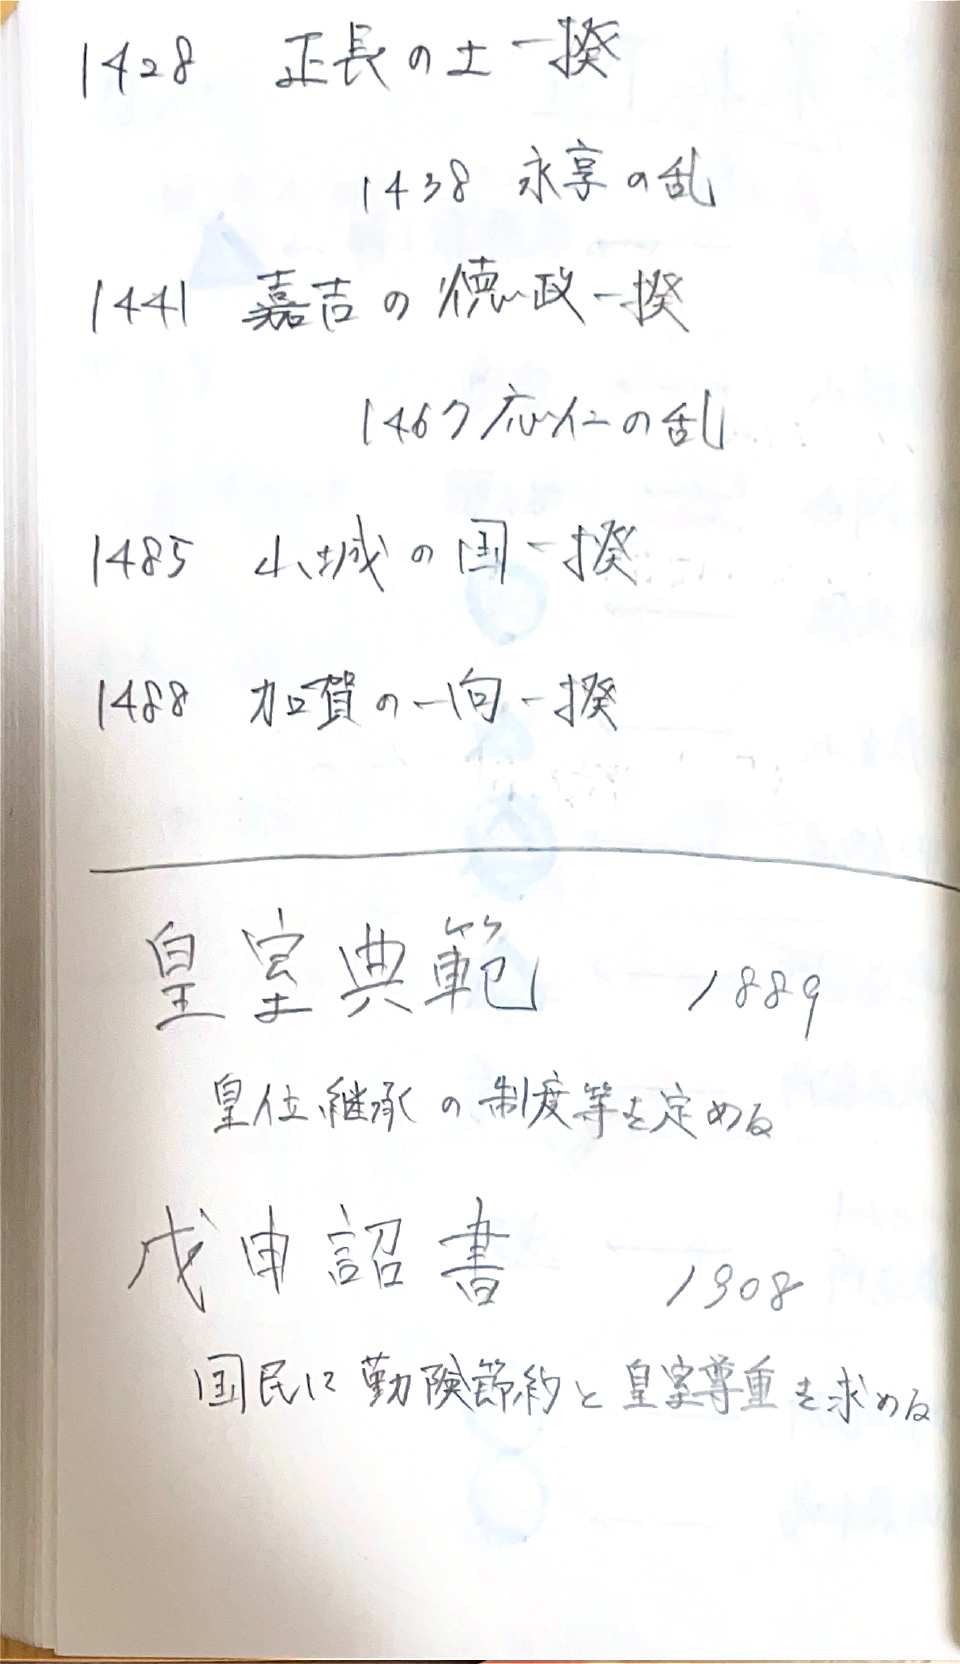 1428 正長の土一揆
1438 永享の乱
1441 嘉吉の徳政一揆
1467 応仁の乱
1485 山城の国一揆
1488 加賀の一向一揆
皇室典範 1889
皇位継承の制度等を定める
戊申詔書 1908
国民に勤険節約と皇室尊重を求める